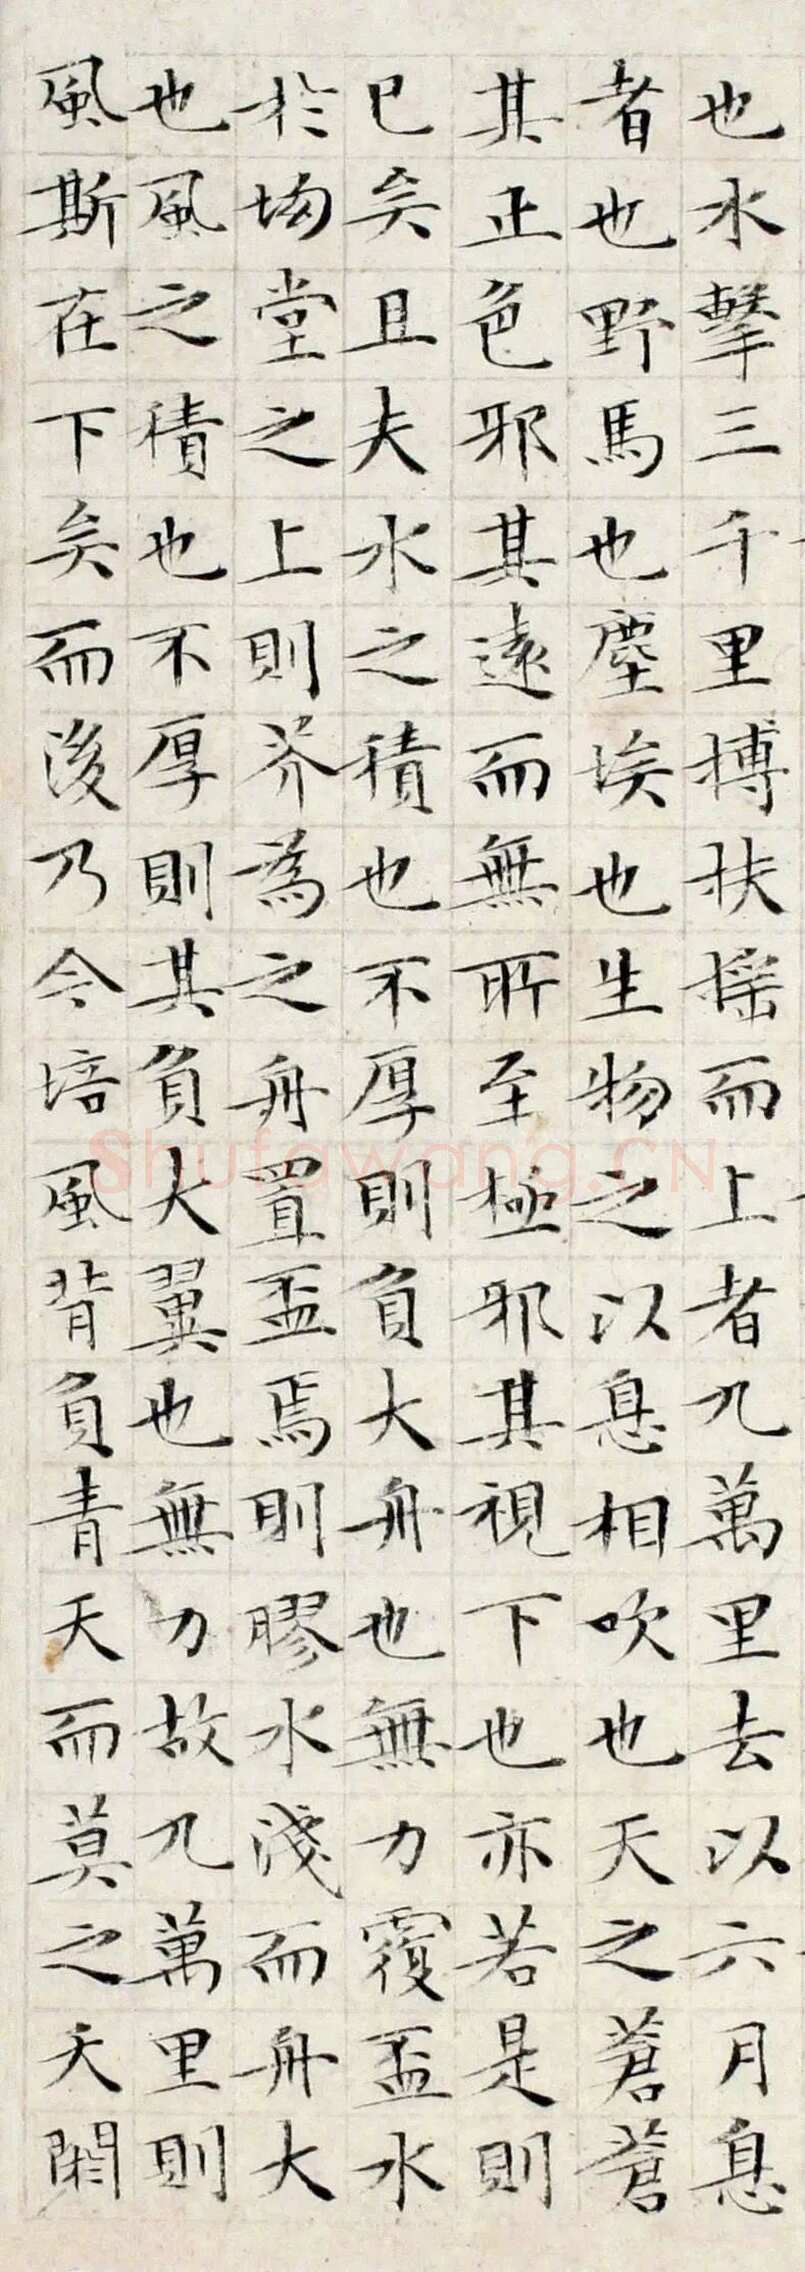 也水擊三千里搏扶搖而上者九萬里去以六月息
者也野馬也塵埃也生物之以息相吹也天之蒼蒼
其正色邪其遠而無所至極邪其視下也亦若是則
已矣且夫水之積也不厚則負大舟也無力覆盃水
於坳堂之上則芥為之舟置盃焉則膠水淺而舟大
也風之積也不厚則其負大翼也無力故九萬里則
風斯在下矣而後乃今培風背負青天而莫之夭閼
Shufawang.CN